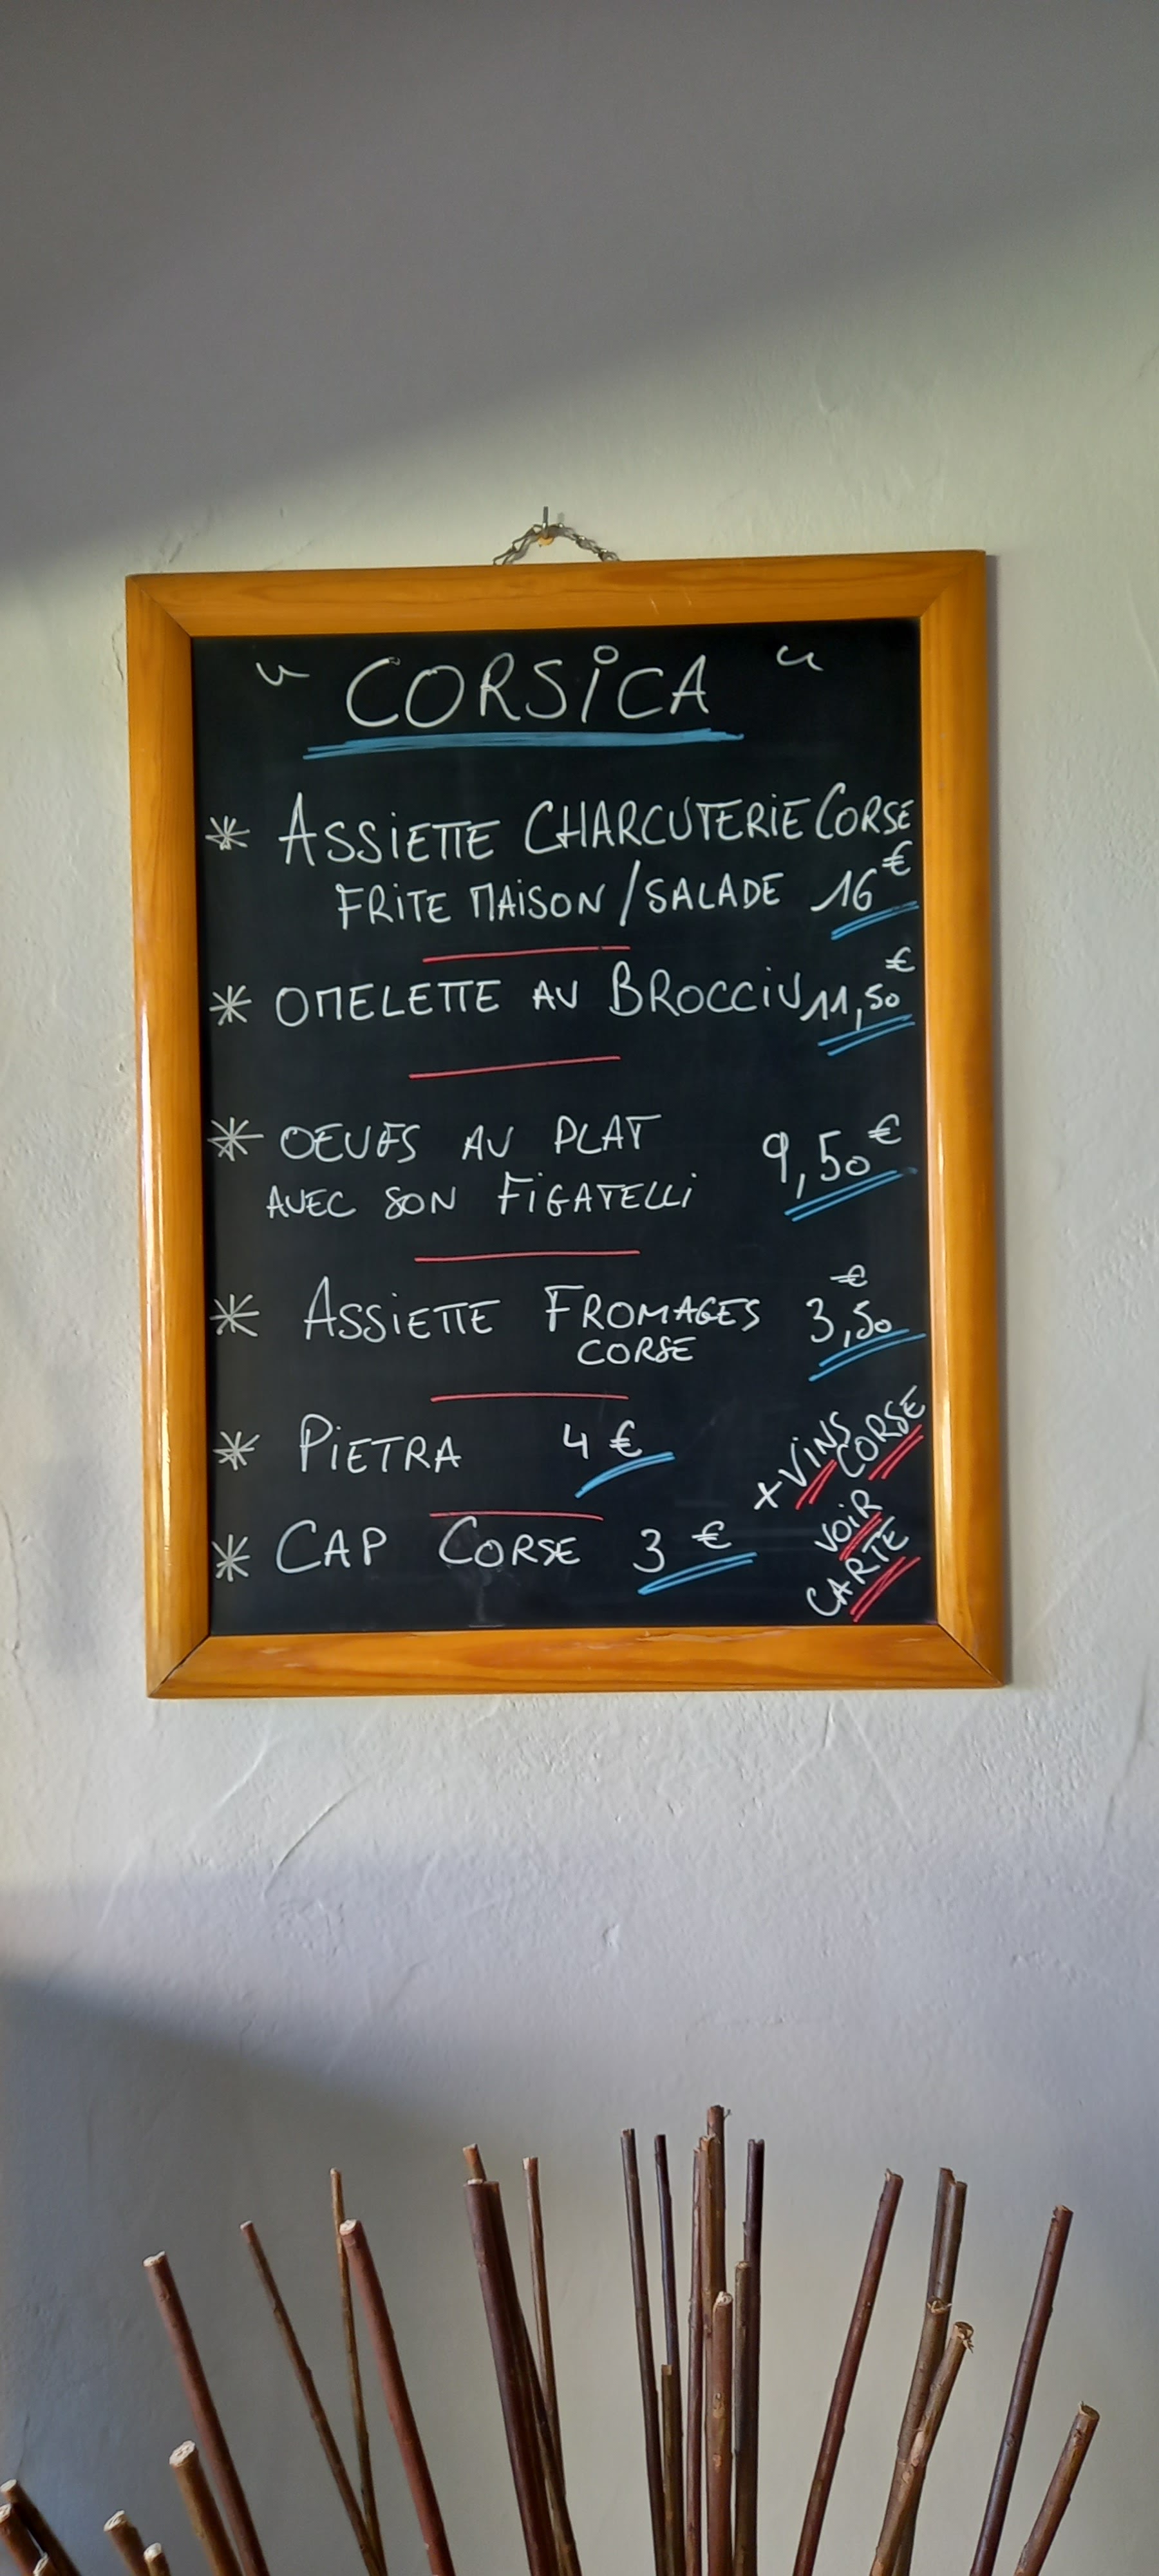 " CORSiCA "
* ASSIETTE CHARCUTERIE CORSE
FRITE MAISON / SALADE 16 €
* OMELETTE AU BROCCIU 11,50 €
* OEUFS AU PLAT
AVEC SON FIGATELLI 9,50 €
* ASSIETTE FROMAGES 3,50 €
CORSE
* PIETRA 4 €
* CAP CORSE 3 €
x VINS
CORSE
VOIR
CARTE